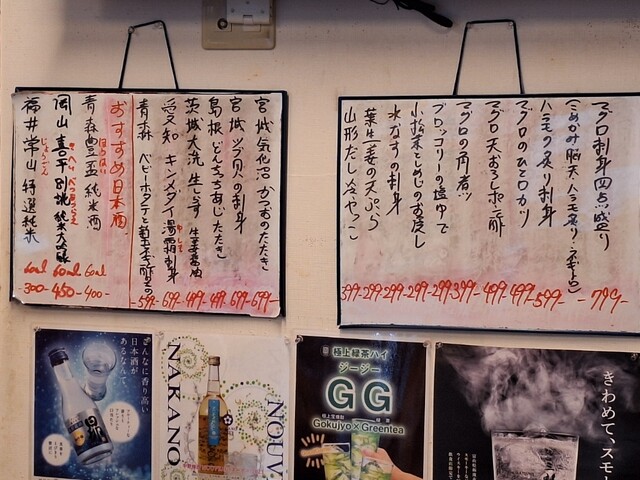 宮城気仙沼 かつおのたたき -699-
宮城 ツブ貝の刺身 -699-
島根 どんちっちあじたたき -499-
茨城大洗 生しらす 生姜醤油 -499-
愛知 キンメダイ湯霜刺身 -699-
青森 ベビーホタテと菊 -599-
おすすめ日本酒
青森 豊盃 純米酒 60ml -400-
岡山 喜平 別誂 純米大吟醸 60ml -450-
福井 常山 特選純米 60ml -300-
マグロ刺身四点盛り -799-
(こめかみ・脳天・ハラモ炙り・
ハラモ炙り刺身 -599-
マグロのひと口カツ -499-
マグロ天おろしポン酢 -499-
マグロの角煮 -399-
ブロッコリーの塩ゆで -299-
小松菜としめじのお浸し -299-
水なすの刺身 -299-
葉生姜の天ぷら -299-
山形だし冷やっこ -399-
こんなに香り高い
日本酒が
あるなんて。
NAKANO
NOUV
極上緑茶ハイ
ジージー
GG
Gokujyo×Greentea
きわめて、スモ